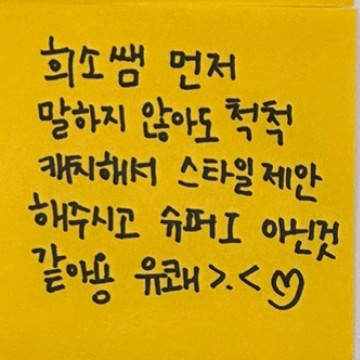 희소쌤 먼저
말하지 않아도 척척
캐치해서 스타일제안
해주시고 슈퍼I 아닌것
같아용 유쾌 >.< ♡